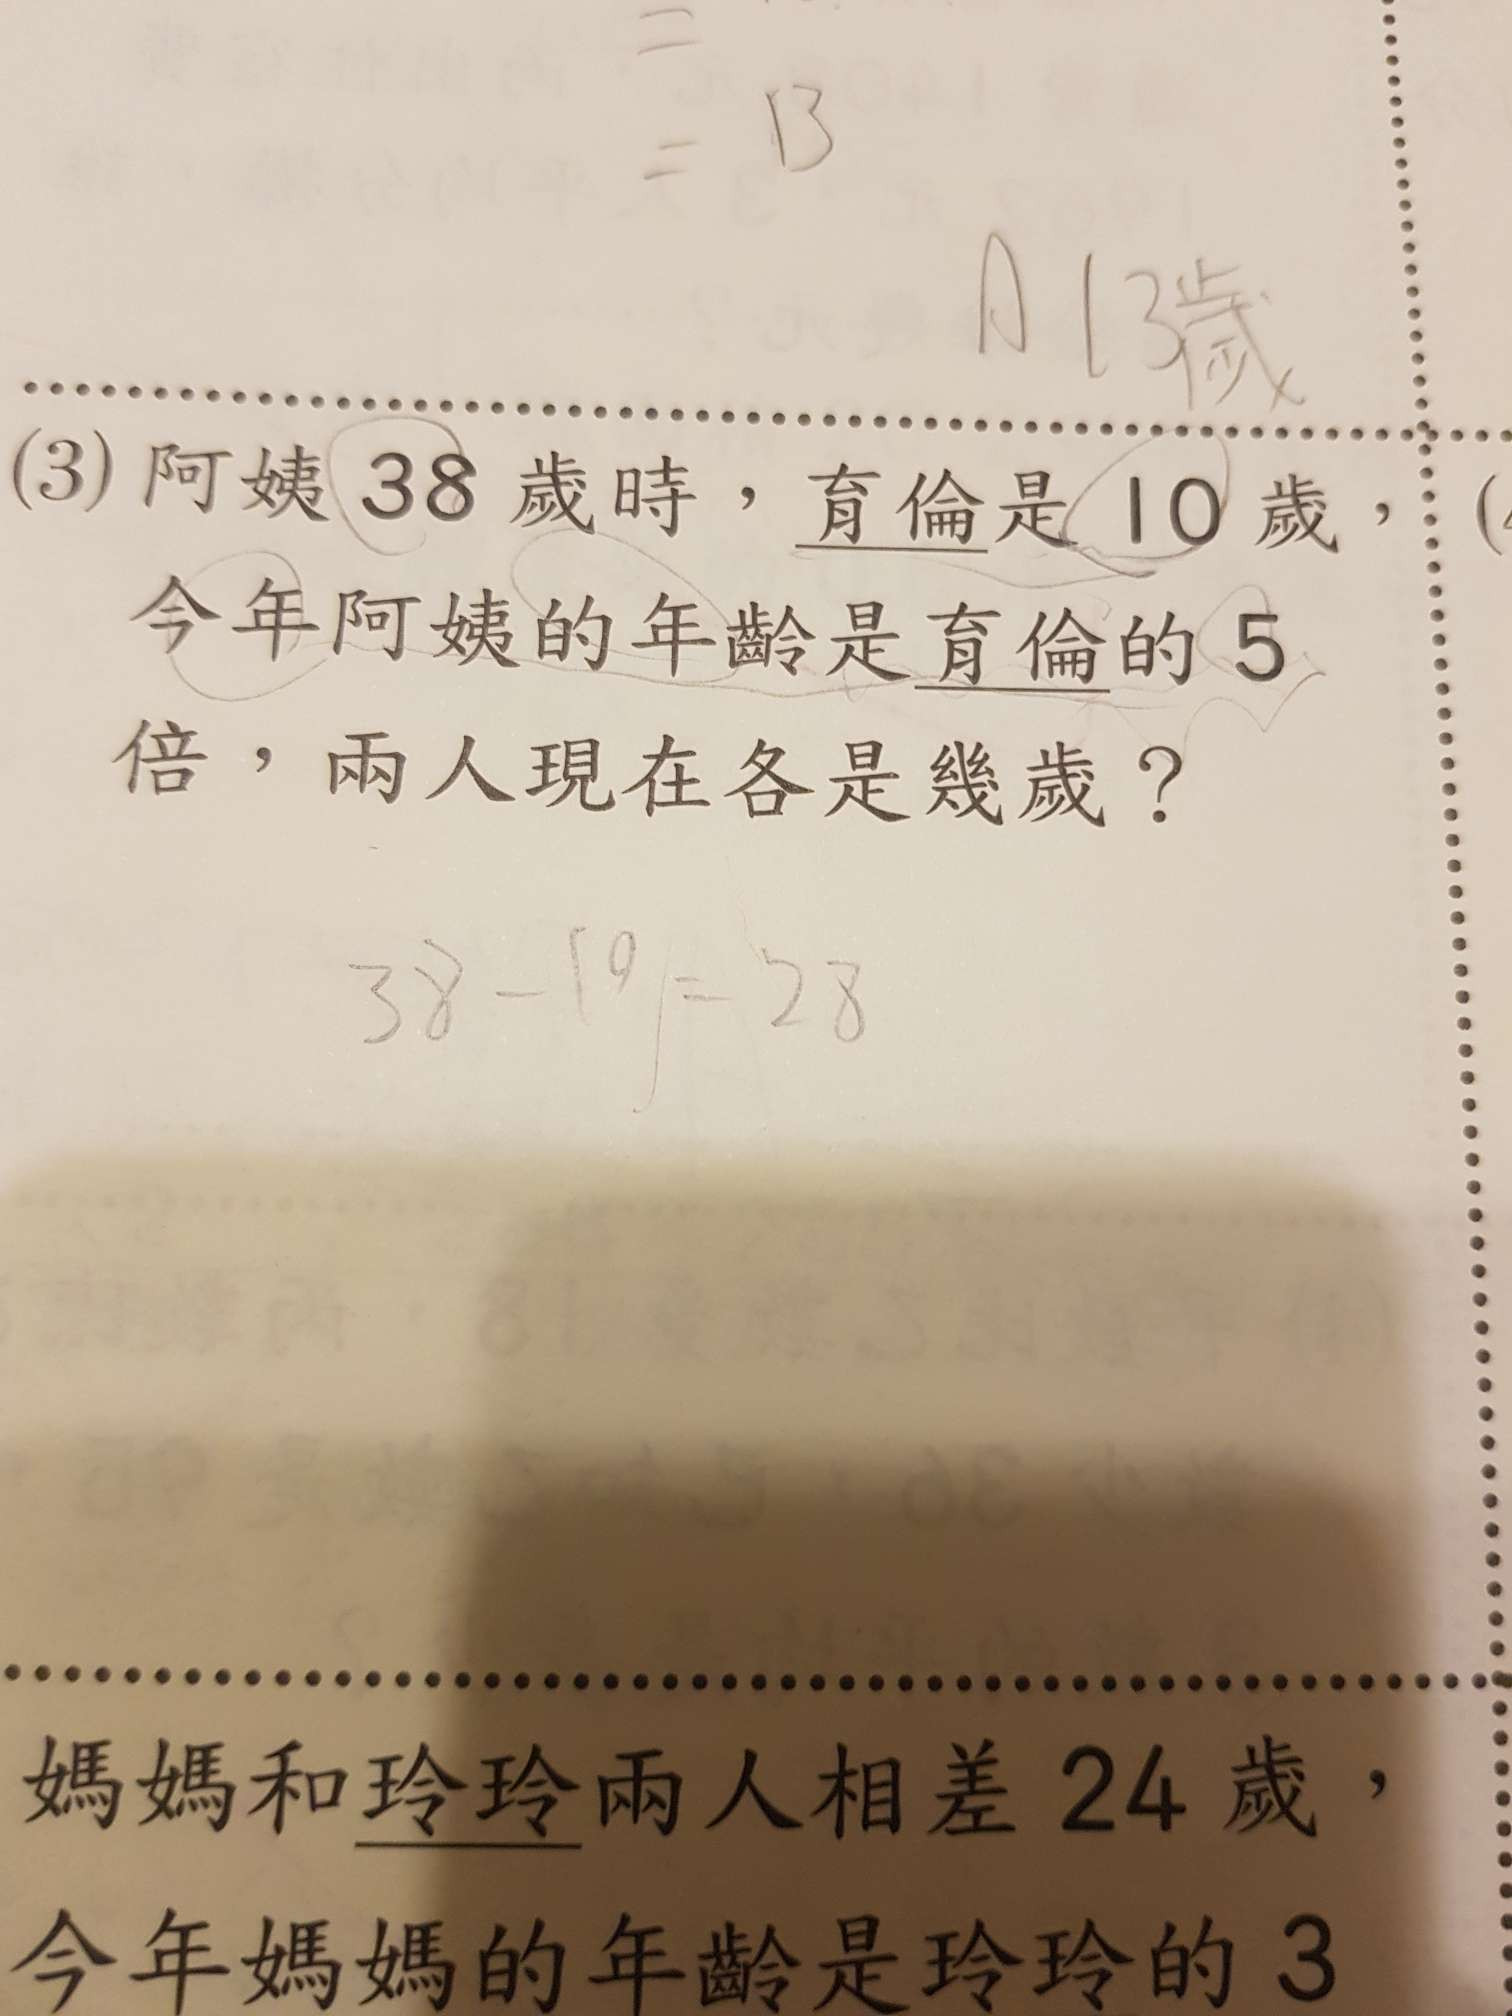 =
= 13
A 13歲
(3) 阿姨 38 歲時，育倫是 10 歲，
今年阿姨的年齡是育倫的 5
倍，兩人現在各是幾歲？
38-10=28
媽媽和玲玲兩人相差 24 歲，
今年媽媽的年齡是玲玲的 3